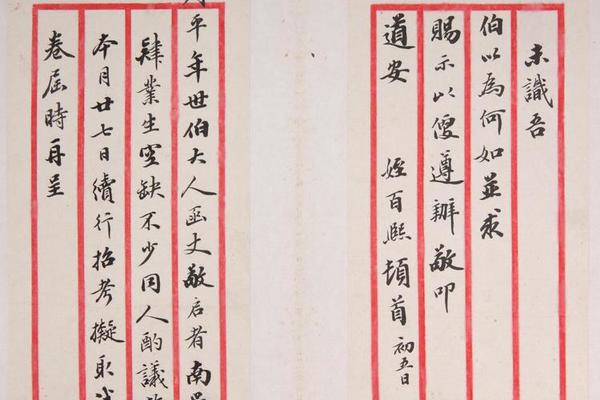 未識吾
伯以為何如並求
賜示以便遵辦敬叩
道安 姪百熙頓首 初五日
平年世伯大人函丈敬启者南
肄業生空缺不少同人酌議
本月廿七日續行招考擬取
卷屆時再呈